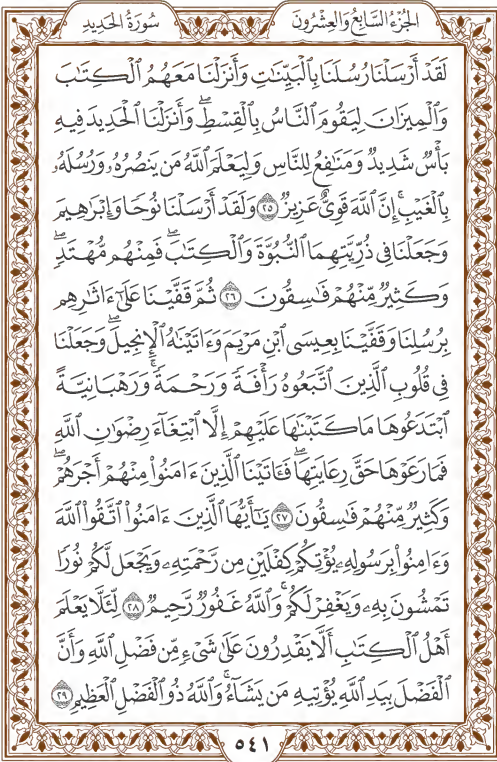 الجُزْءُ السَّابِعُ وَالعِشْرُونَ
سُورَةُ الحَدِيدِ
لَقَدْ أَرْسَلْنَا رُسُلَنَا بِالْبَيِّنَاتِ وَأَنزَلْنَا مَعَهُمُ الْكِتَابَ
وَالْمِيزَانَ لِيَقُومَ النَّاسُ بِالْقِسْطِ ۖ وَأَنزَلْنَا الْحَدِيدَ فِيهِ
بَأْسٌ شَدِيدٌ وَمَنَافِعُ لِلنَّاسِ وَلِيَعْلَمَ اللَّهُ مَن يَنصُرُهُۥ وَرُسُلَهُۥ
بِالْغَيْبِ ۚ إِنَّ اللَّهَ قَوِيٌّ عَزِيزٌ ٢٥ وَلَقَدْ أَرْسَلْنَا نُوحًا وَإِبْرَٰهِيمَ
وَجَعَلْنَا فِي ذُرِّيَّتِهِمَا النُّبُوَّةَ وَالْكِتَٰبَ ۖ فَمِنْهُم مُّهْتَدٍ ۖ
وَكَثِيرٌ مِّنْهُمْ فَٰسِقُونَ ٢٦ ثُمَّ قَفَّيْنَا عَلَىٰٓ ءَاثَٰرِهِم
بِرُسُلِنَا وَقَفَّيْنَا بِعِيسَى ابْنِ مَرْيَمَ وَءَاتَيْنَٰهُ الْإِنجِيلَ ۖ وَجَعَلْنَا
فِي قُلُوبِ الَّذِينَ اتَّبَعُوهُ رَأْفَةً وَرَحْمَةً ۚ وَرَهْبَانِيَّةً
ابْتَدَعُوهَا مَا كَتَبْنَٰهَا عَلَيْهِمْ إِلَّا ابْتِغَآءَ رِضْوَٰنِ اللَّهِ
فَمَا رَعَوْهَا حَقَّ رِعَايَتِهَا ۖ فَـَٔاتَيْنَا الَّذِينَ ءَامَنُوا۟ مِنْهُمْ أَجْرَهُمْ ۖ
وَكَثِيرٌ مِّنْهُمْ فَٰسِقُونَ ٢٧ يَٰٓأَيُّهَا الَّذِينَ ءَامَنُوا۟ اتَّقُوا۟ اللَّهَ
وَءَامِنُوا۟ بِرَسُولِهِۦ يُؤْتِكُمْ كِفْلَيْنِ مِن رَّحْمَتِهِۦ وَيَجْعَل لَّكُمْ نُورًا
تَمْشُونَ بِهِۦ وَيَغْفِرْ لَكُمْ ۚ وَاللَّهُ غَفُورٌ رَّحِيمٌ ٢٨ لِّئَلَّا يَعْلَمَ
أَهْلُ الْكِتَٰبِ أَلَّا يَقْدِرُونَ عَلَىٰ شَيْءٍ مِّن فَضْلِ اللَّهِ ۙ وَأَنَّ
الْفَضْلَ بِيَدِ اللَّهِ يُؤْتِيهِ مَن يَشَآءُ ۚ وَاللَّهُ ذُو الْفَضْلِ الْعَظِيمِ ٢٩
٥٤١